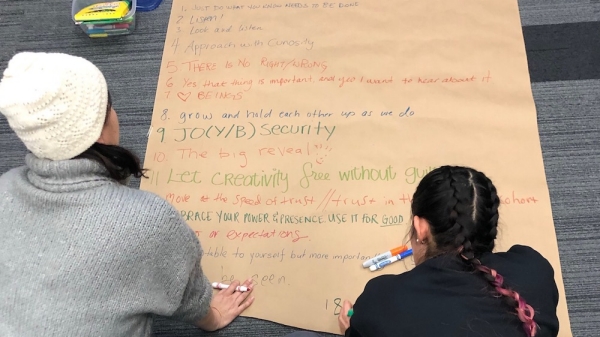 1. JUST DO WHAT YOU KNOW NEEDS TO BE DONE
2 Listen!
3. Look and listen
4 Approach with Curiosity
5 THERE IS NO RIGHT/WRONG
6 Yes that thing is important, and yes I want to hear about it
7 ♡ BEINGS
8. grow and hold each other up as we do
9 JO(Y/B) Security
10. The big reveal
11 Let creativity free without
Move at the speed of trust // trust in
POWER & PRESENCE USE IT FOR GOOD
or expectations.
to yourself but more
be seen.
18